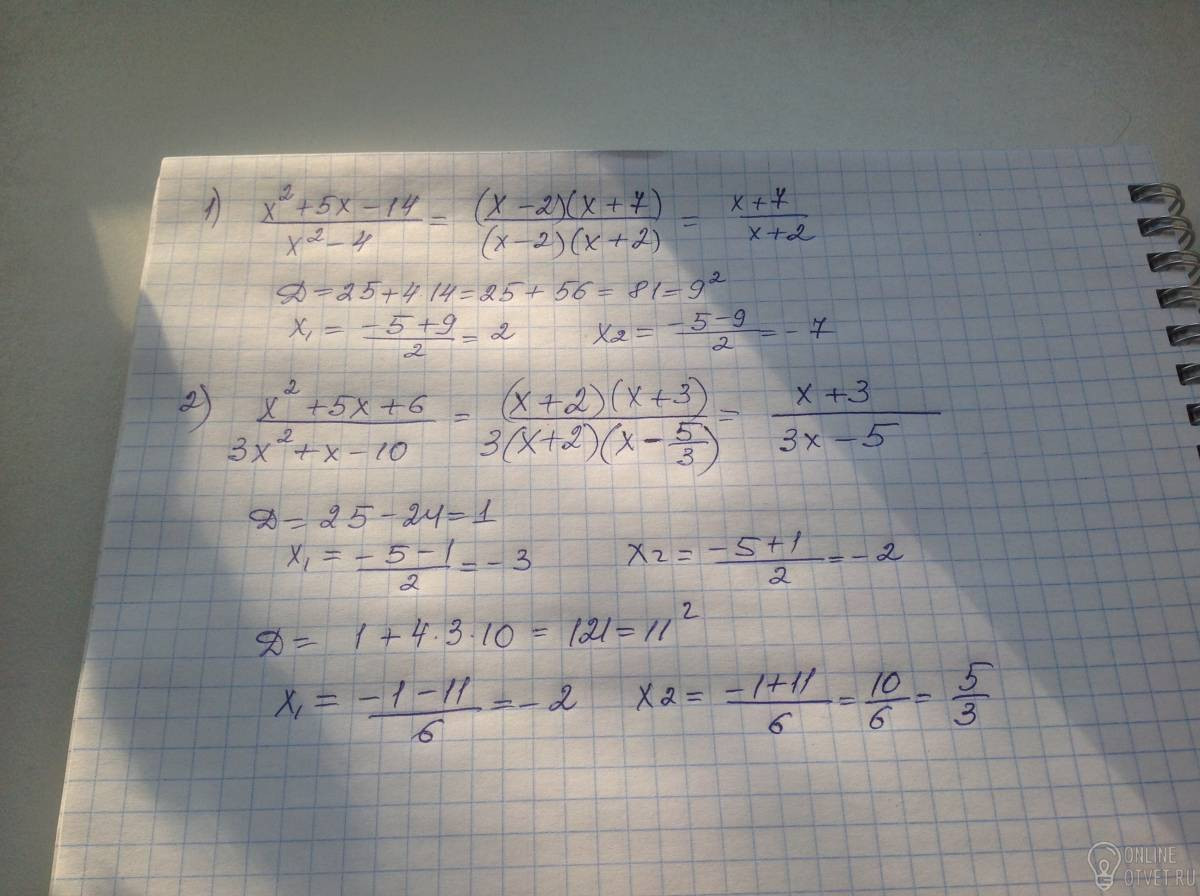 1) (x² + 5x − 14)/(x² − 4) = ((x − 2)(x + 7))/((x − 2)(x + 2)) = (x + 7)/(x + 2)
Д = 25 + 4·14 = 25 + 56 = 81 = 9²
x₁ = (−5 + 9)/2 = 2 x₂ = (−5 − 9)/2 = −7
2) (x² + 5x + 6)/(3x² + x − 10) = ((x + 2)(x + 3))/(3(x + 2)(x − 5/3)) = (x + 3)/(3x − 5)
Д = 25 − 24 = 1
x₁ = (−5 − 1)/2 = −3 x₂ = (−5 + 1)/2 = −2
Д = 1 + 4·3·10 = 121 = 11²
x₁ = (−1 − 11)/6 = −2 x₂ = (−1 + 11)/6 = 10/6 = 5/3
ONLINE
OTVET.RU